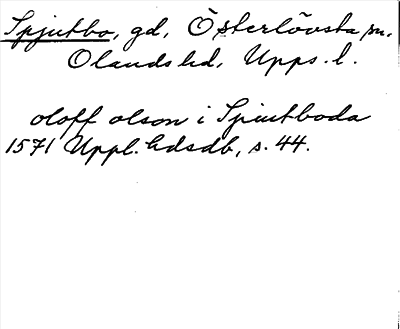 Spjutbo, gd, Österlövsta sn,
Olands hd, Upps. l.
oloff olson i Spiutboda
1571 Uppl. hdsdb, s. 44.